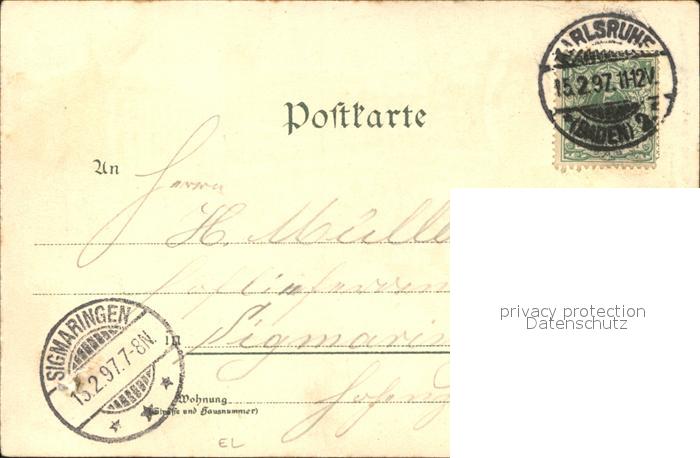 KARLSRUHE
15.2.97.11-12V.
(BADEN) 2
Postkarte
An
Herrn
H. Mülle
Hoflieferan
in Sigmarin
SIGMARINGEN
15.2.97.7-8N.
Wohnung
(Straße und Hausnummer)
Hohenz
EL
privacy protection
Datenschutz